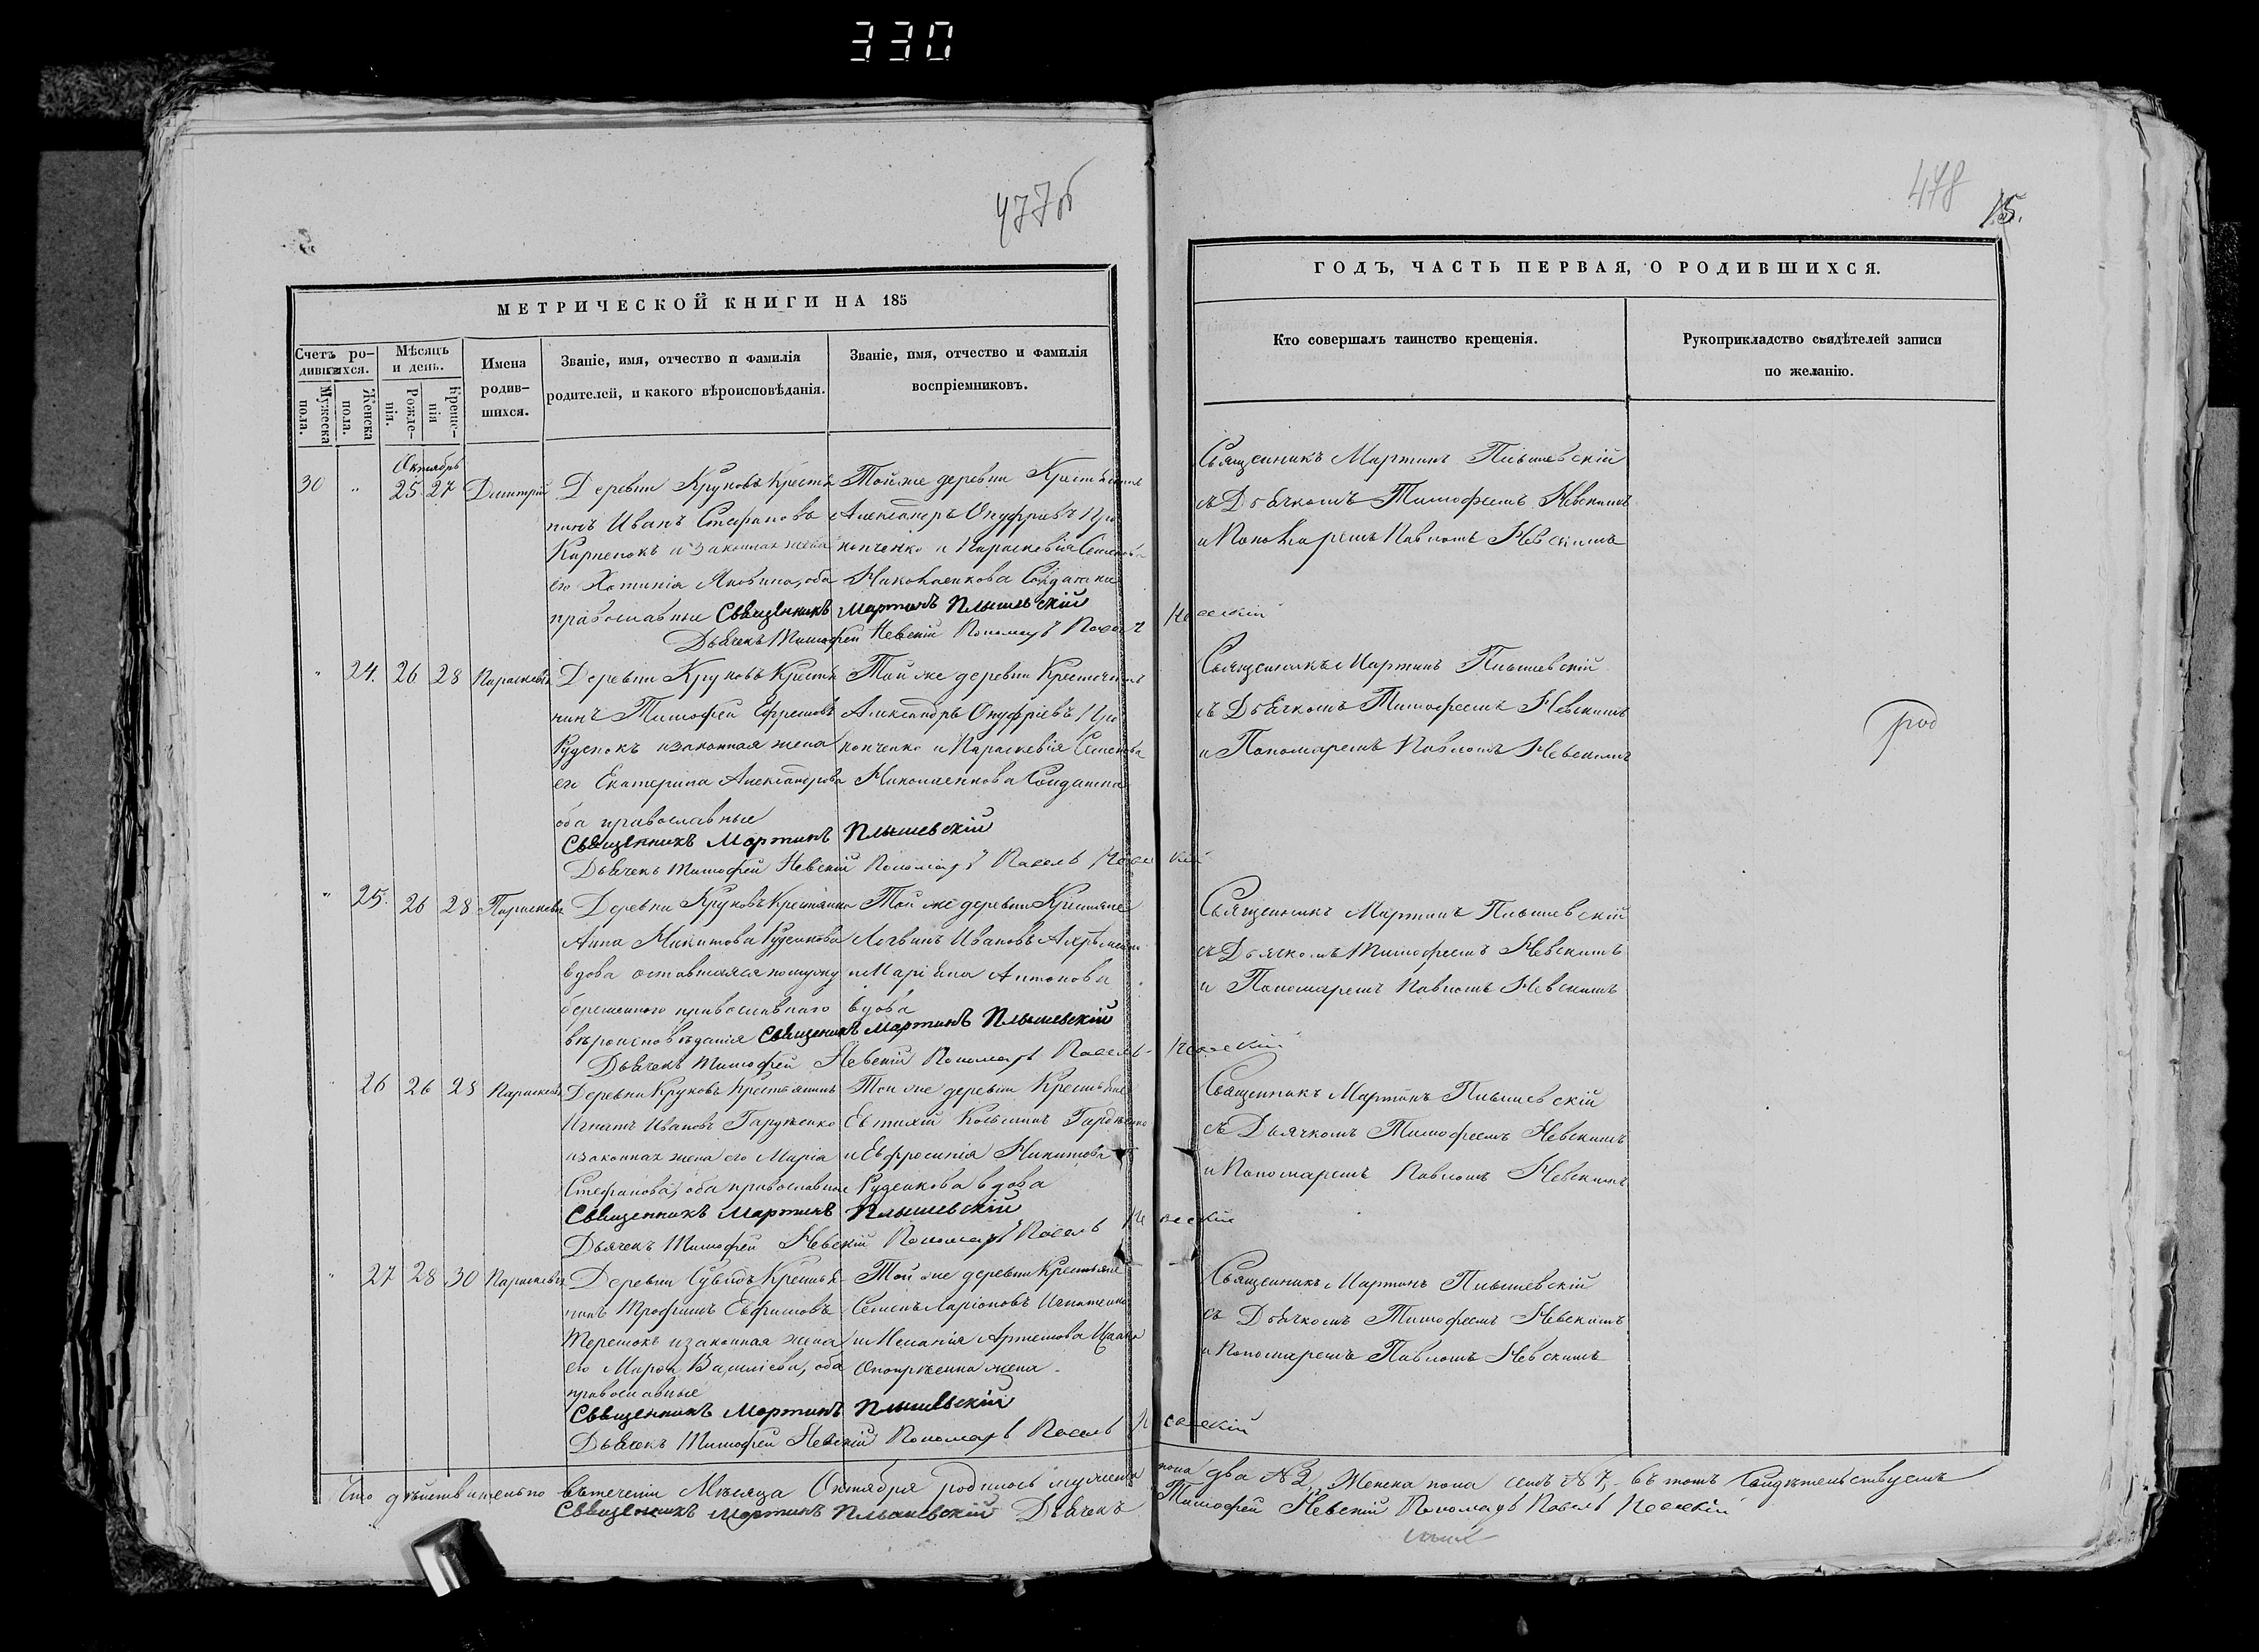 330
477об
478
15.
МЕТРИЧЕСКОЙ КНИГИ НА 185
Счетъ ро-
дившихся.
Мужеска
пола.
Женска
пола.
Мѣсяцъ
и день.
Рожде-
нія.
Креще-
нія
Имена
родив-
шихся.
Званіе, имя, отчество и фамилія
родителей, и какого вѣроисповѣданія.
Званіе, имя, отчество и фамилія
воспріемниковъ.
ГОДЪ, ЧАСТЬ ПЕРВАЯ, О РОДИВШИХСЯ.
Кто совершалъ таинство крещенія.
Рукоприкладство свидѣтелей записи
по желанію.
Октябрь
30 „ 25 27 Димитрій
Деревни Круковъ Крестья
нинъ Иванъ Стефановъ
Карпенокъ и законная жена
его Хотинія Яковина, оба
православные
Той же деревни Крестьянинъ
Александръ Онуфріевъ Про
копченко и Параскевія Семенова
Николаенкова Солдатка
Священникъ Мартинъ Плышевскій
Дьячекъ Тимофей Невскій Пономарь Павелъ Невский
Священникъ Мартинъ Плышевскій
съ Дьячкомъ Тимофеемъ Невскимъ
и Пономаремъ Павломъ Невскимъ
„ 24. 26 28 Параскевія
Деревни Круковъ Крестья
нинъ Тимофей Ефремовъ
Руденокъ и законная жена
его Екатерина Александрова
оба православные
Той же деревни Крестьянинъ
Александръ Онуфріевъ Про
копченко и Параскевія Семенова
Николаенкова Солдатка
Священникъ Мартинъ Плышевскій
Дьячекъ Тимофей Невскій Пономарь Павелъ Невский
Священникъ Мартинъ Плышевскій
съ Дьячкомъ Тимофеемъ Невскимъ
и Пономаремъ Павломъ Невскимъ
род
„ 25. 26 28 Параскевія
Деревни Круковъ Крестьянка
Анна Никитова Руденкова
вдова оставшаяся по мужу
беременною православнаго
вѣроисповѣданія
Той же деревни Крестьяне
Логвинъ Ивановъ
и Маріяна Антонова
вдова
Священникъ Мартинъ Плышевскій
Дьячекъ Тимофей Невскій Пономарь Павелъ Невский
Священникъ Мартинъ Плышевскій
съ Дьячкомъ Тимофеемъ Невскимъ
и Пономаремъ Павломъ Невскимъ
„ 26 26 28 Параскевія
Деревни Круковъ Крестьянинъ
Игнатъ Ивановъ
и законная жена его Марія
Стефанова, оба православные
Той же деревни Крестьяне
Евтихій Козьминъ
и Евфросинія Никитова
Руденкова вдова
Священникъ Мартинъ Плышевскій
Дьячекъ Тимофей Невскій Пономарь Павелъ Невский
Священникъ Мартинъ Плышевскій
съ Дьячкомъ Тимофеемъ Невскимъ
и Пономаремъ Павломъ Невскимъ
„ 27 28 30 Параскевія
Деревни Крестья
нинъ Трофимъ Евфимовъ
Терешокъ и законная жена
его Марѳа Василіева, оба
православные
Той же деревни Крестьяне
Семенъ Ларіоновъ Игнатенко
и Меланія Артемова
жена
Священникъ Мартинъ Плышевскій
Дьячекъ Тимофей Невскій Пономарь Павелъ Невский
Священникъ Мартинъ Плышевскій
съ Дьячкомъ Тимофеемъ Невскимъ
и Пономаремъ Павломъ Невскимъ
Что дѣйствительно въ теченіи Мѣсяца Октября родилось мужеска пола два № 2, Женска пола семь № 7, въ томъ свидѣтельствуемъ
Священникъ Мартинъ Плышевскій Дьячекъ Тимофей Невскій Пономарь Павелъ Невский